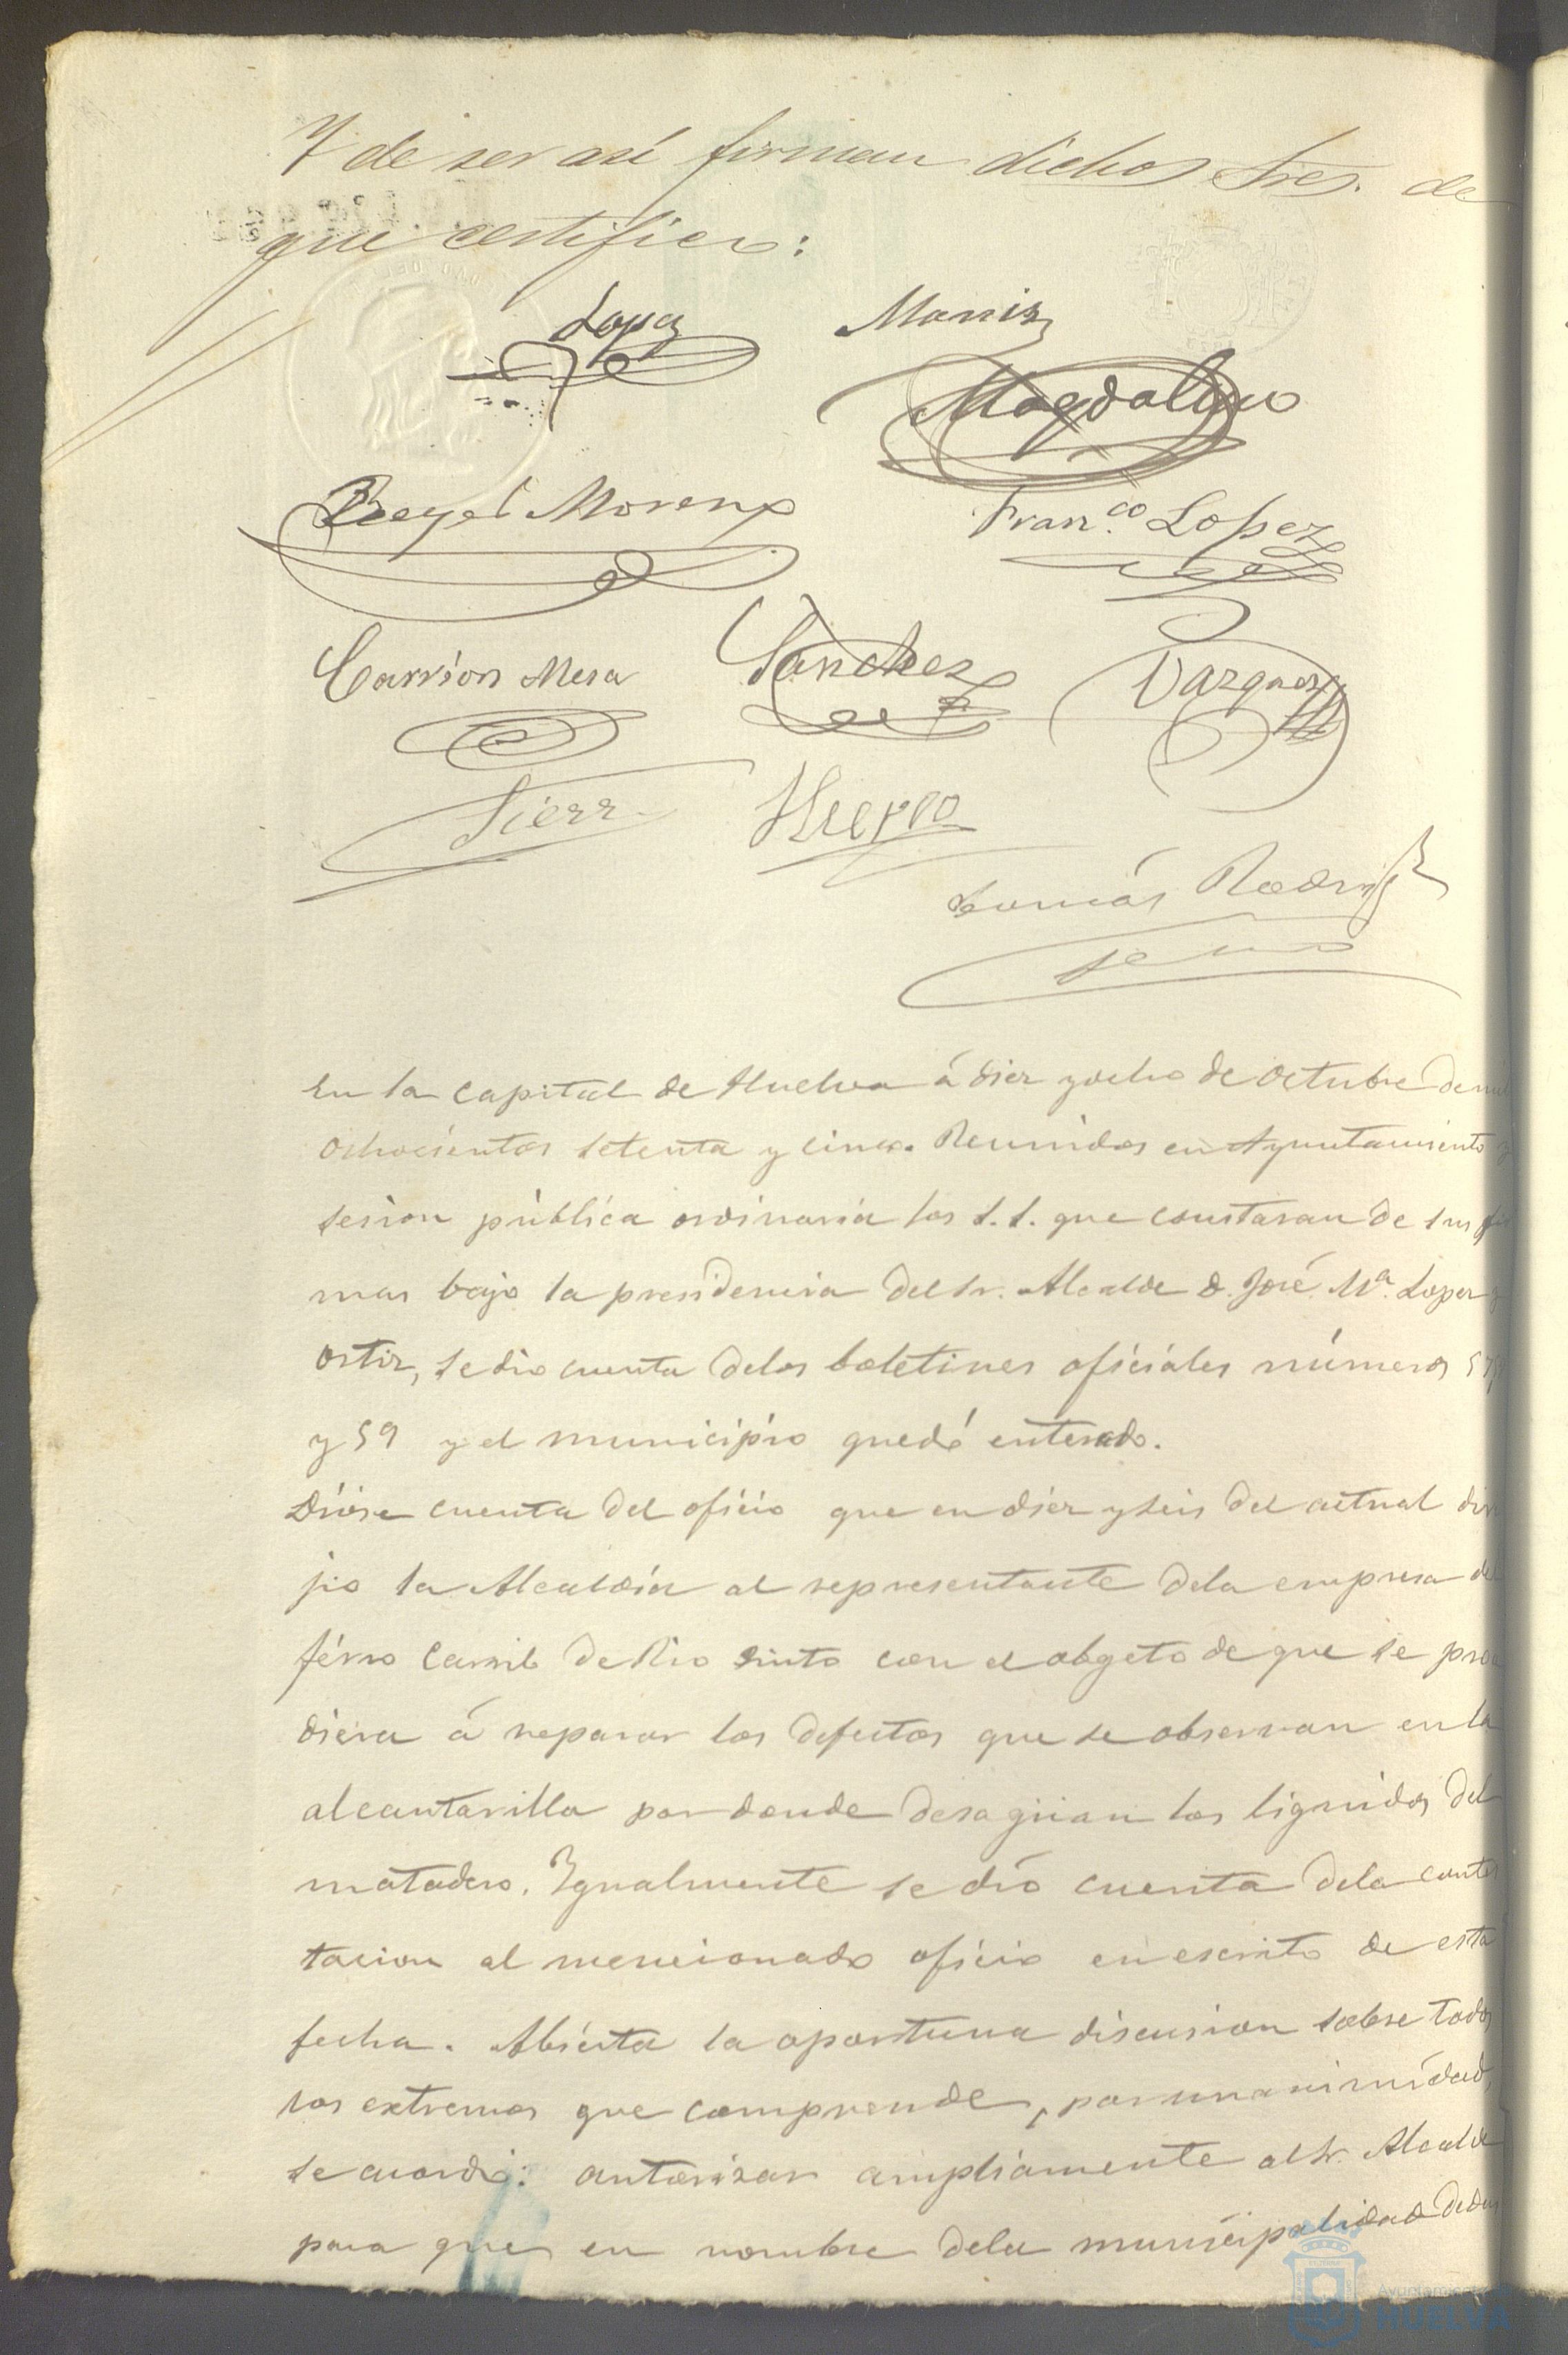 Y de ser así firman dichos Sres. de
que certifico:
Lopez
Monis
Magdaleno
Moreno
Fran.co Lopez
Carrion Mesa
Sanchez
Vazquez
Sierr
Tomás Rodrig
En la capital de Huelva á diez y ocho de Octubre de mil
ochocientos setenta y cinco. Reunidos en Ayuntamiento y
sesion pública ordinaria los S. S. que constaran de sus fir
mas bajo la presidencia del Sr. Alcalde D. José Mª. Lopez y
Ortiz, se dio cuenta delos boletines oficiales números 57
y 59 y el municipio quedó enterado.
Dióse cuenta del oficio que en diez y seis del actual diri
jio la Alcaldía al representante dela empresa del
férro Carril de Rio Tinto con el obgeto de que se proce
diera á reparar los defectos que se observan en la
alcantarilla por donde desagüan los liquidos del
matadero. Igualmente se dió cuenta dela contes
tacion al mencionado oficio en escrito de esta
fecha. Abierta la oportuna discusion sobre todos
los extremos que comprende, por unanimidad,
se acordó: autorizar ampliamente al Sr. Alcalde
para que en nombre dela municipalidad
Ayuntamiento
HUELVA